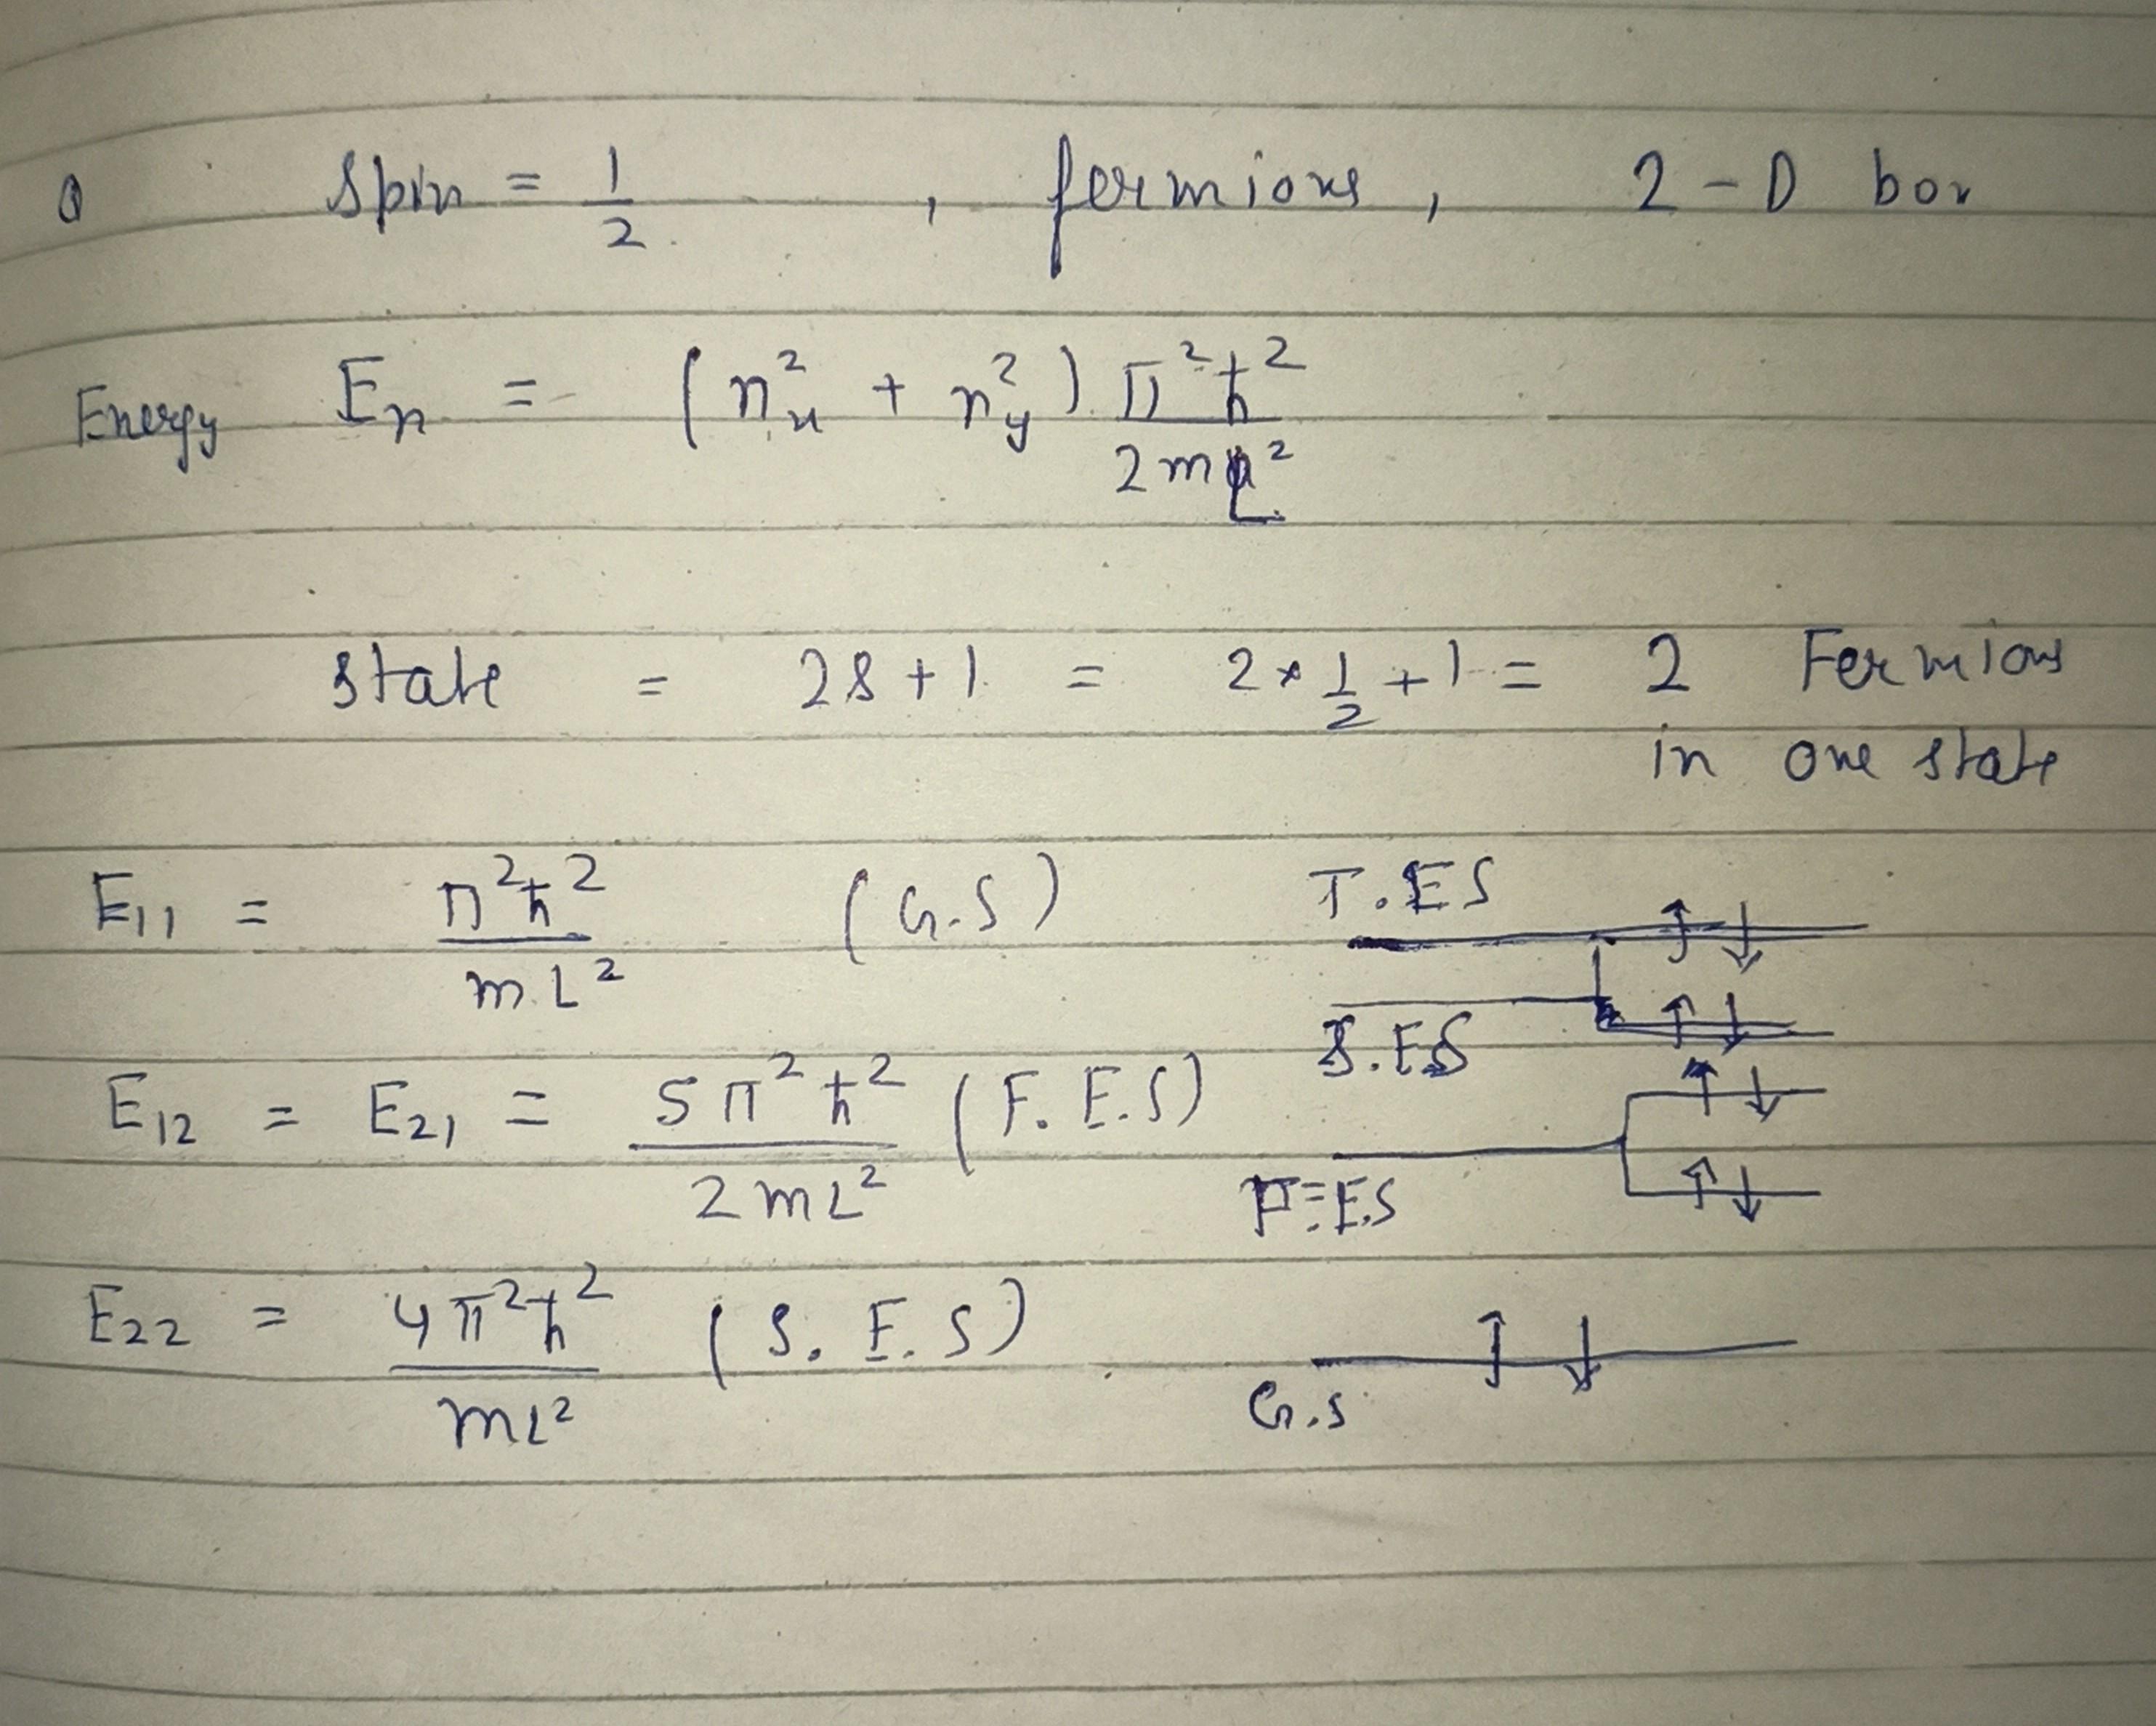 Q Spin = 1/2 , fermions, 2-D box
Energy Eₙ = (nₓ² + n_y²) π²ħ² / 2mL²
State = 2s+1 = 2×1/2+1 = 2 Fermions
in one state
E₁₁ = π²ħ² / mL² (G.S)
T.ES ↑ ↓
S.ES ↑ ↓
E₁₂ = E₂₁ = 5π²ħ² / 2mL² (F.E.S)
↑ ↓
F.E.S ↑ ↓
E₂₂ = 4π²ħ² / mL² (S.E.S)
G.S ↑ ↓